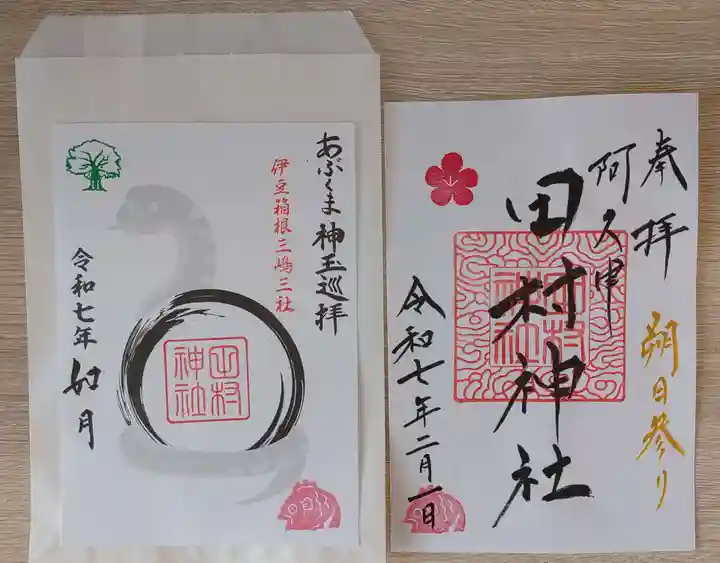 あぶくま神玉巡拝
伊豆箱根三嶋三社
田村
神社
令和七年
如月
奉拝
朔日参り
阿久津
田村神社
田村
神社
令和七年二月一日